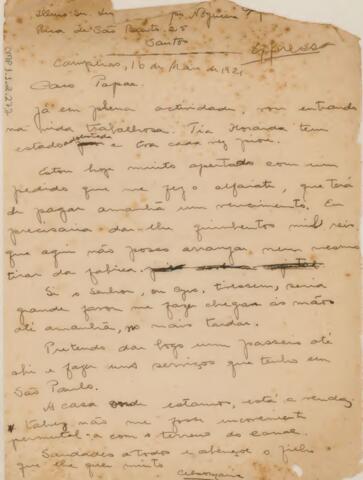 Illmo. Snr. Luiz Nogueira
Rua de São Bento, 25
Santos
Expressa
Campinas, 16 de Maio de 1921
Caro Papae.
Já em plena actividade, vou entrando
na vida trabalhosa. Tia tem
estado adoentada e cada vez peior.
Estou hoje muito apertado com um
pedido que me fez o alfaiate, que terá
de pagar amanhã um vencimento. Eu
precisaria dar-lhe quinhentos mil reis
que aqui não posso arranjar nem mesmo
tirar da fabrica.
Si o Senhor, ou tivessem, seria
grande favor me fazer chegar ás mãos
até amanhã, no mais tardar.
Pretendo dar logo um passeio até
ahi e fazer uns serviços que tenho em
São Paulo.
A casa onde estamos, está a venda;
talvez não me fosse inconveniente
permutal-a com o terreno do canal.
Saudades a todos e abençoe o filho
que lhe quer muito